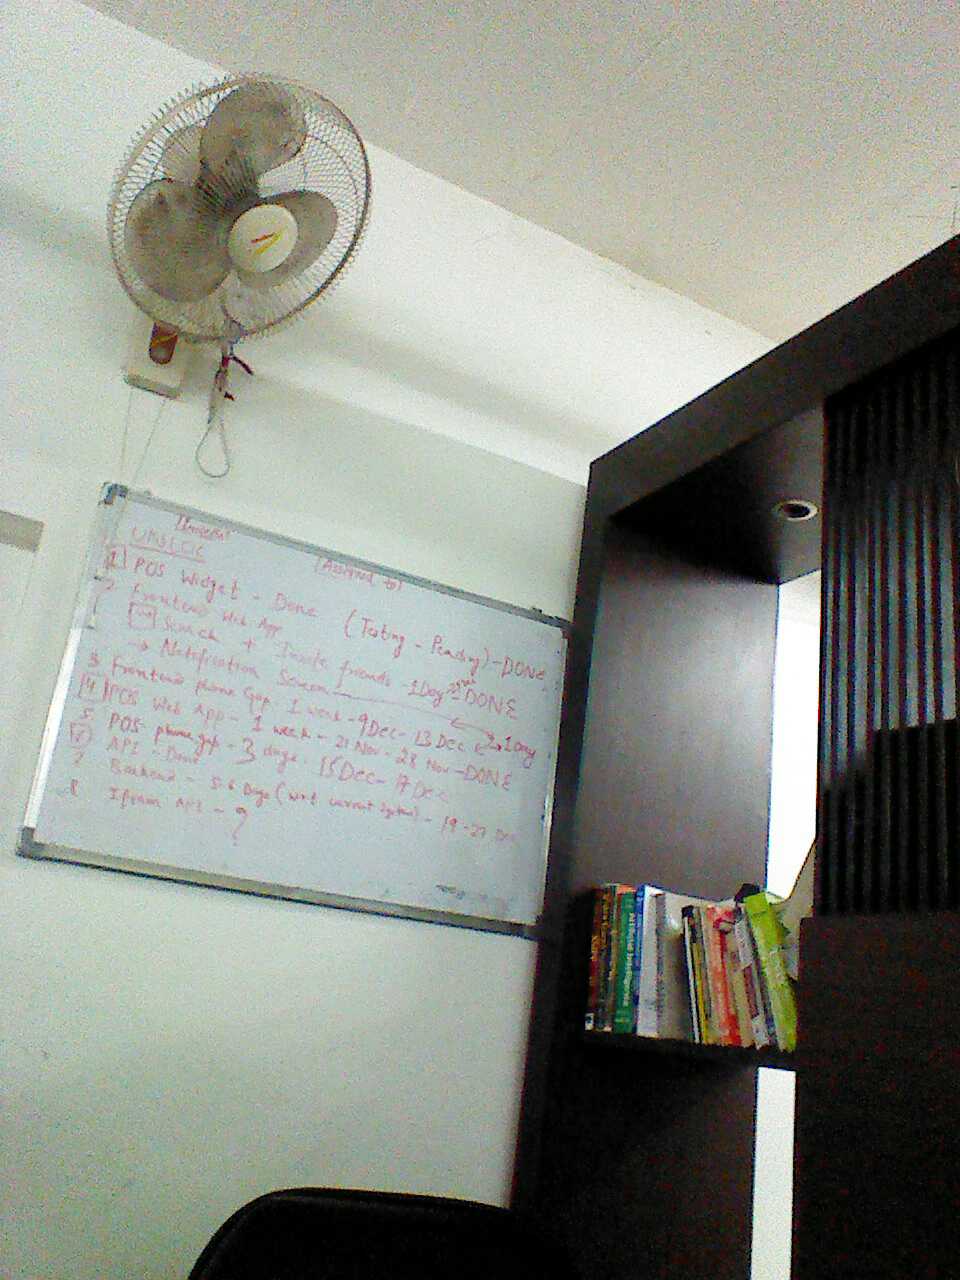 (Assigned to)
1 POS Widget - Done (Testing - Pending) - DONE
2 Frontend Web App
Search + Invite friends - 1 Day DONE
→ Notification Screen 1 Day
3 Frontend phone gap 1 week - 9 Dec - 13 Dec
4 POS Web App - 1 week - 21 Nov - 28 Nov - DONE
5 POS phonegap - 3 days. 15 Dec - 17 Dec
6 API - Done
7 Backend - 5-6 Days (wrt current system) - 19 - 27 Dec
8 Iframe API - ?
Artificial Intelligence